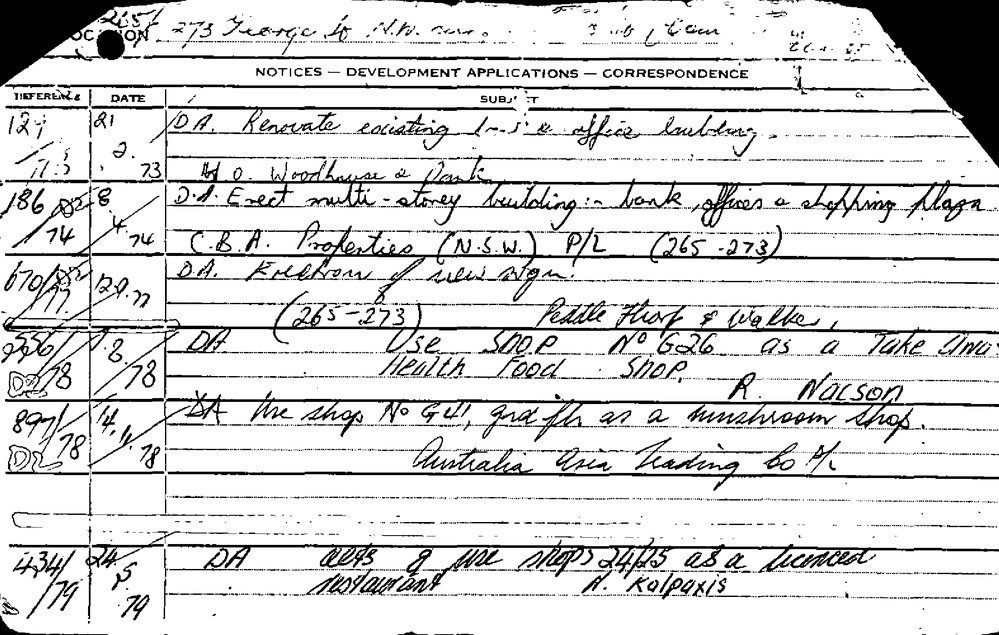 265/
273 George St
NOTICES — DEVELOPMENT APPLICATIONS — CORRESPONDENCE
REFERENCE DATE SUBJECT
21 D.A. Renovate existing office building.
2.
73 O. Woodhouse & Danks
186 8 D.A. Erect multi-storey building:- bank, offices & shopping plaza
/74 4. 74 C.B.A. Properties (N.S.W.) P/L (265-273)
670/ 12.9.77 D.A. Erection of new sign.
77 (265-273) Peddle Thorp & Walker,
8. DA Use SHOP Nº G26 as a Take
D2 /78 78 Health Food SHOP.
R. Nacson
897/ 14. DA Use shop Nº G41, grd flr as a mushroom shop.
D2 /78 11. 78 Australia Asia Trading Co P/L
434/ 24. DA alts & use shops 24/25 as a licenced
/79 5. 79 restaurant A. Kalpaxis